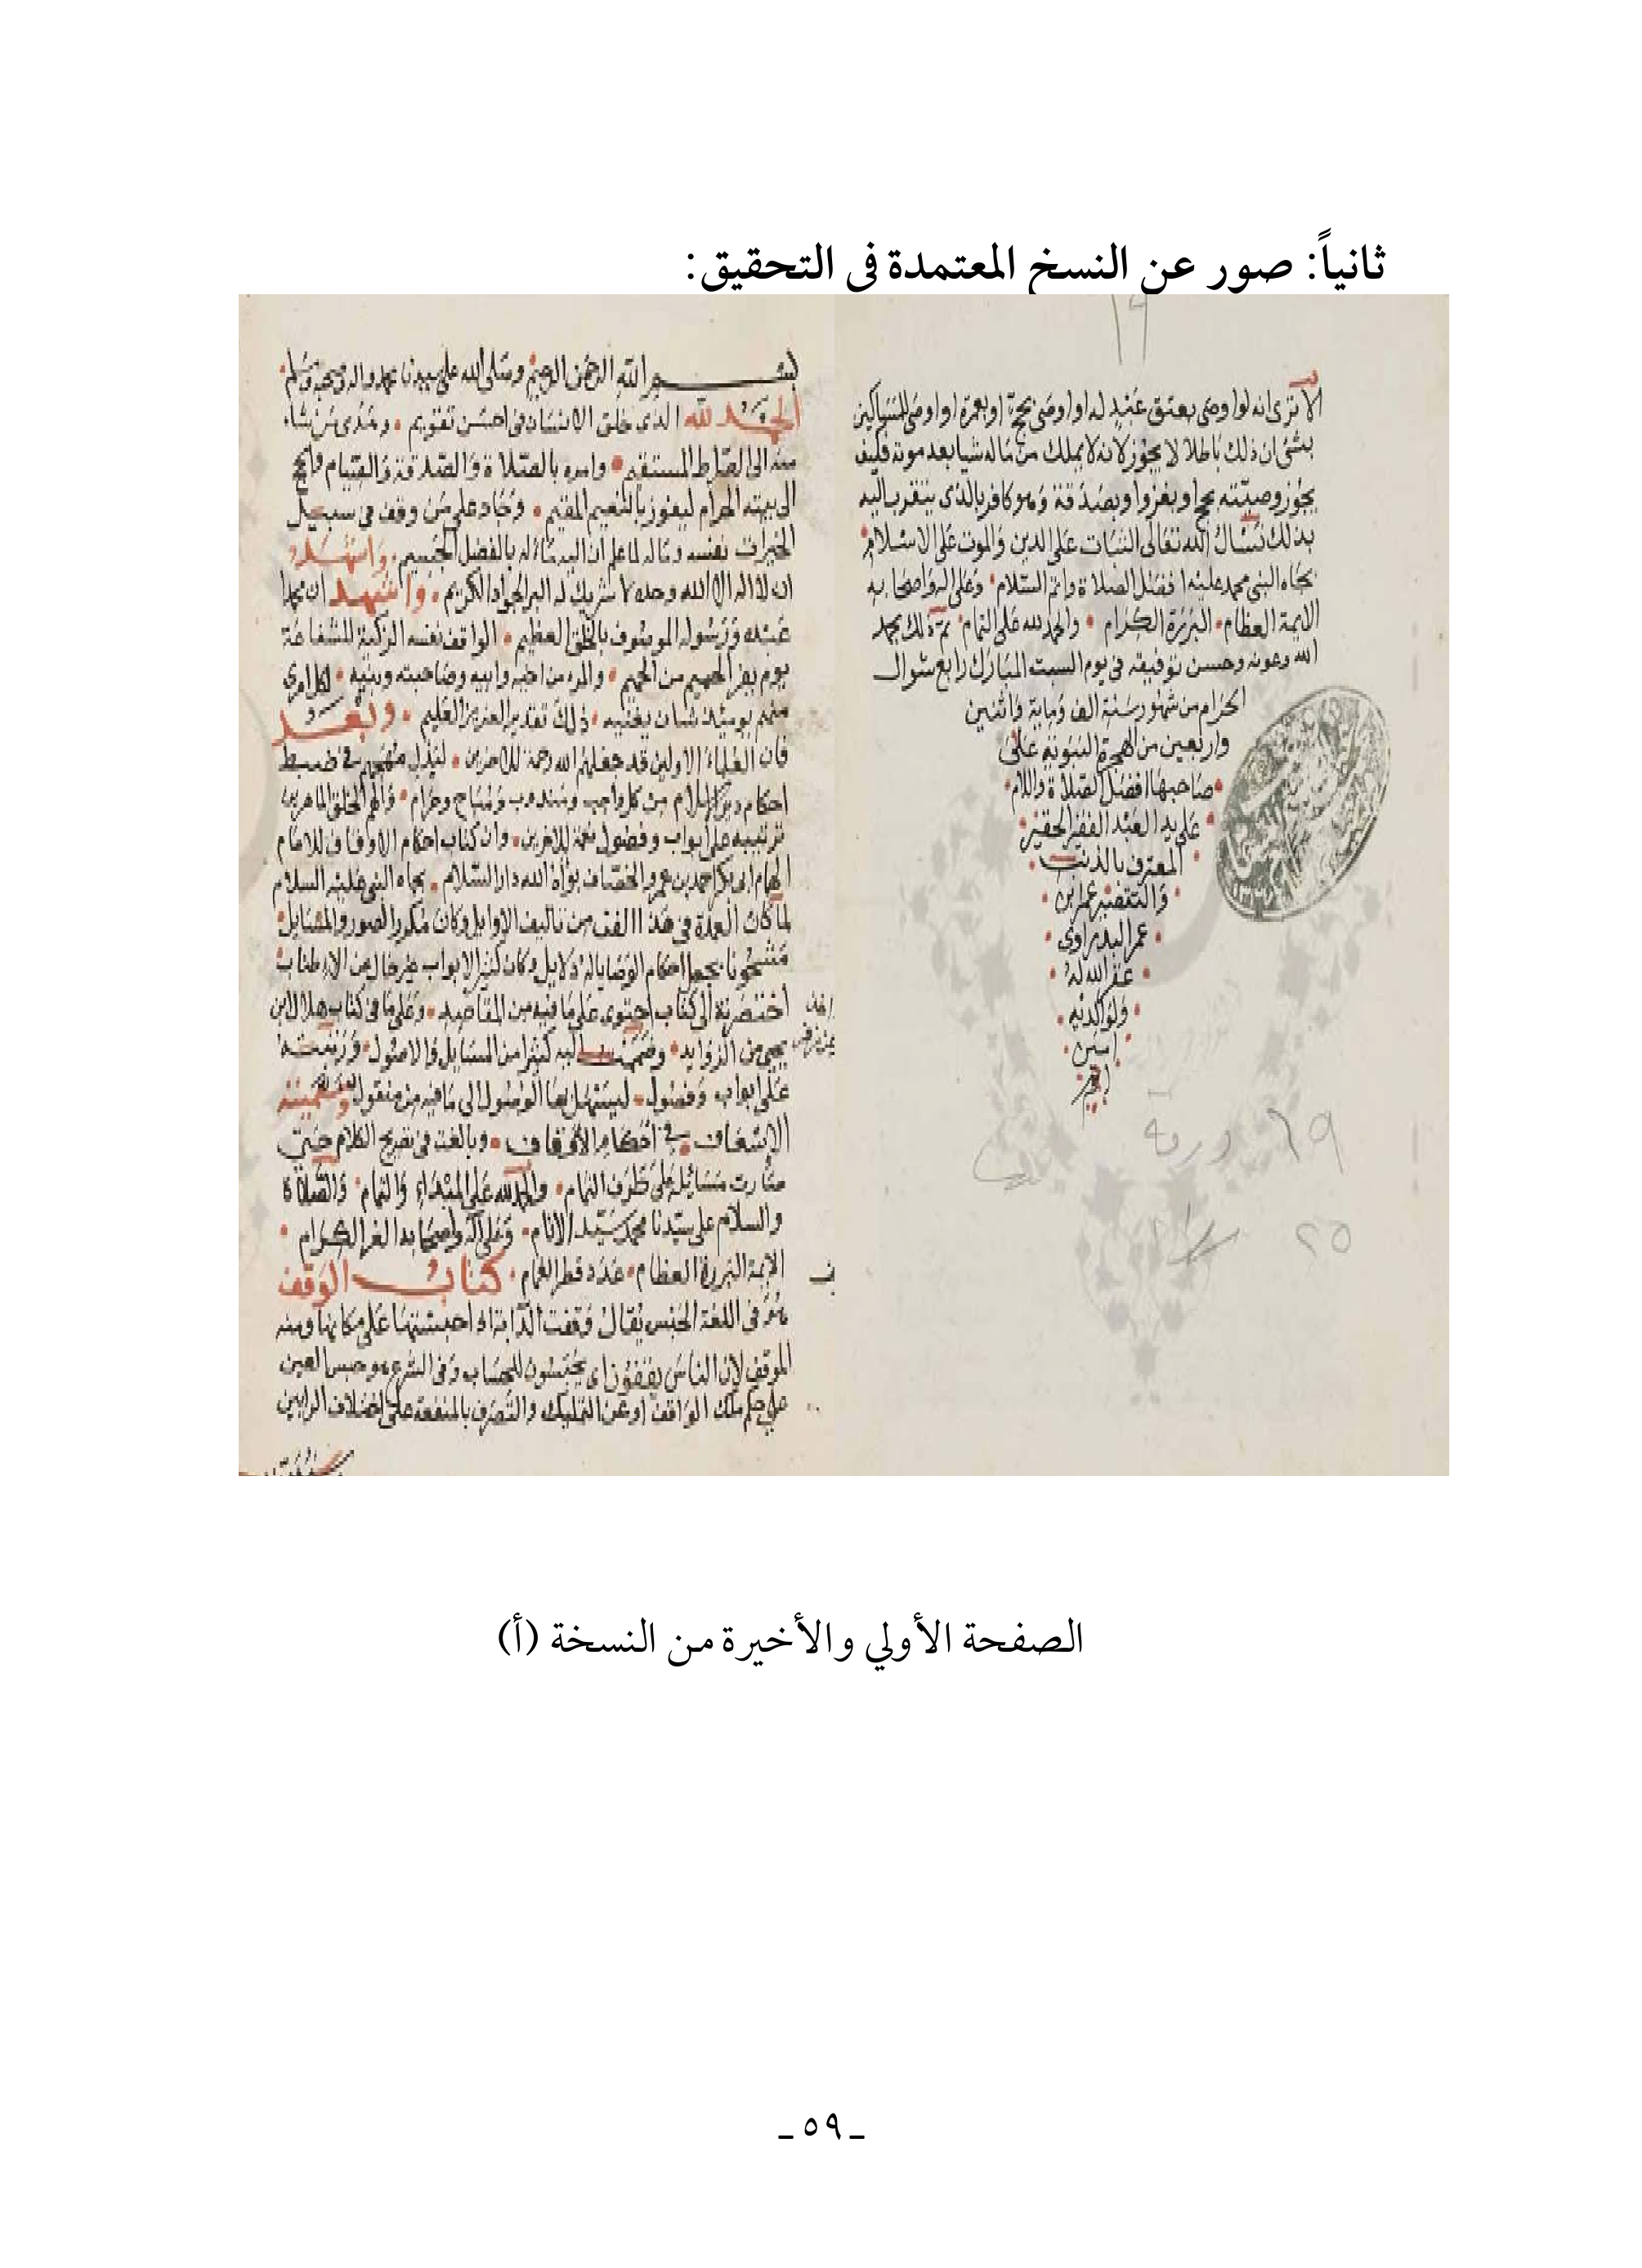 ثانياً: صور عن النسخ المعتمدة فى التحقيق:
الا ترى انه لو اوصى بعتق عبد له او اوصى بحجة او بعمرة او اوصى للمساكين
بشئ ان ذلك باطلا لا يجوز لانه لا يملك من ماله شيا بعد موته فكيف
يجوز وصيته بحج او بغزو او بصدقة وهو كافر بالذى يتقرب اليه
بذلك نسال الله تعالى الثبات على الدين والموت على الاسلام
بجاه النبي محمد عليه افضل الصلاة واتم السلام وعلى اله واصحابه
الايمة العظام البررة الكرام والحمد لله على التمام تم ذلك بحمد
الله وعونه وحسن توفيقه في يوم السبت المبارك رابع شوال
الحرام من شهور سنة الف وماية واثنين
واربعين من الهجرة النبوية على
صاحبها افضل الصلاة والسلام
على يد العبد الفقير الحقير
المعترف بالذنب
والتقصير عمر بن
عمر البدراوى
غفر الله له
ولوالديه
امين
١٩ ورقة
٢٥
بسم الله الرحمن الرحيم وصلى الله على سيدنا محمد واله وصحبه وسلم
الحمد لله الذي خلق الانسان فى احسن تقويم وهدى من شاء
منه الى الصراط المستقيم وامره بالصلاة والصدقة والصيام والحج
الى بيته الحرام ليفوز بالنعيم المقيم وجاد على من وقف في سبيل
الخيرات نفسه وماله لما علم ان اليه مآله بالفضل الجسيم واشهد
ان لا اله الا الله وحده لا شريك له البر الجواد الكريم واشهد ان محمدا
عبده ورسوله الموصوف بالخلق العظيم الواقف نفسه الزكية للشفاعة
يوم يفر الحميم من الحميم والمرء من اخيه وابيه وصاحبته وبنيه لكل امرى
منهم يوميذ شان يغنيه ذلك تقدير العزيز العليم وبعد
فان العلماء الاولين قد جعلهم الله رحمة للاخرين لبذل مهجهم في ضبط
احكام دين الاسلام من كل واجب ومندوب ومباح وحرام والهم الخلق الماهرين
ترتيبه على ابواب وفصول نعمة للاخرين وان كتاب احكام الاوقاف للامام
الهمام ابى بكر احمد بن عمرو الخصاف بوأه الله دار السلام بجاه النبي عليه السلام
لما كان العمدة في هذا الفن من تاليف الاوايل وكان مكرر الصور والمسايل
مشحونا بجمل احكام الوصايا
اختصرته الى كتاب احتوى على ما فيه من المقاصد وعلى ما فى كتاب هلال ابن
يحيى من الزوايد وضممت اليه كثيرا من المسايل والاصول ورتبته
على ابواب وفصول ليسهل بها الوصول الى ما فيه من منقول وسميته
الاسعاف في احكام الاوقاف وبالغت فى الكلام حتى
صارت مسائله على طرف التمام والحمد لله على المبداء والتمام والصلاة
والسلام على سيدنا محمد سيد الانام وعلى اله واصحابه الغر الكرام
الايمة البررة العظام عدد قطر الغمام كتاب الوقف
هو فى اللغة الحبس يقال وقفت الدابة اذا حبستها على مكانها ومنه
الموقف لان الناس يقفون اى يحبسون للحساب وفى الشرع هو حبس العين
على حكم ملك الواقف او عن التمليك والتصرف بالمنفعة على اختلاف الرايين
الصفحة الأولي والأخيرة من النسخة (أ)
ـ ٥٩ ـ